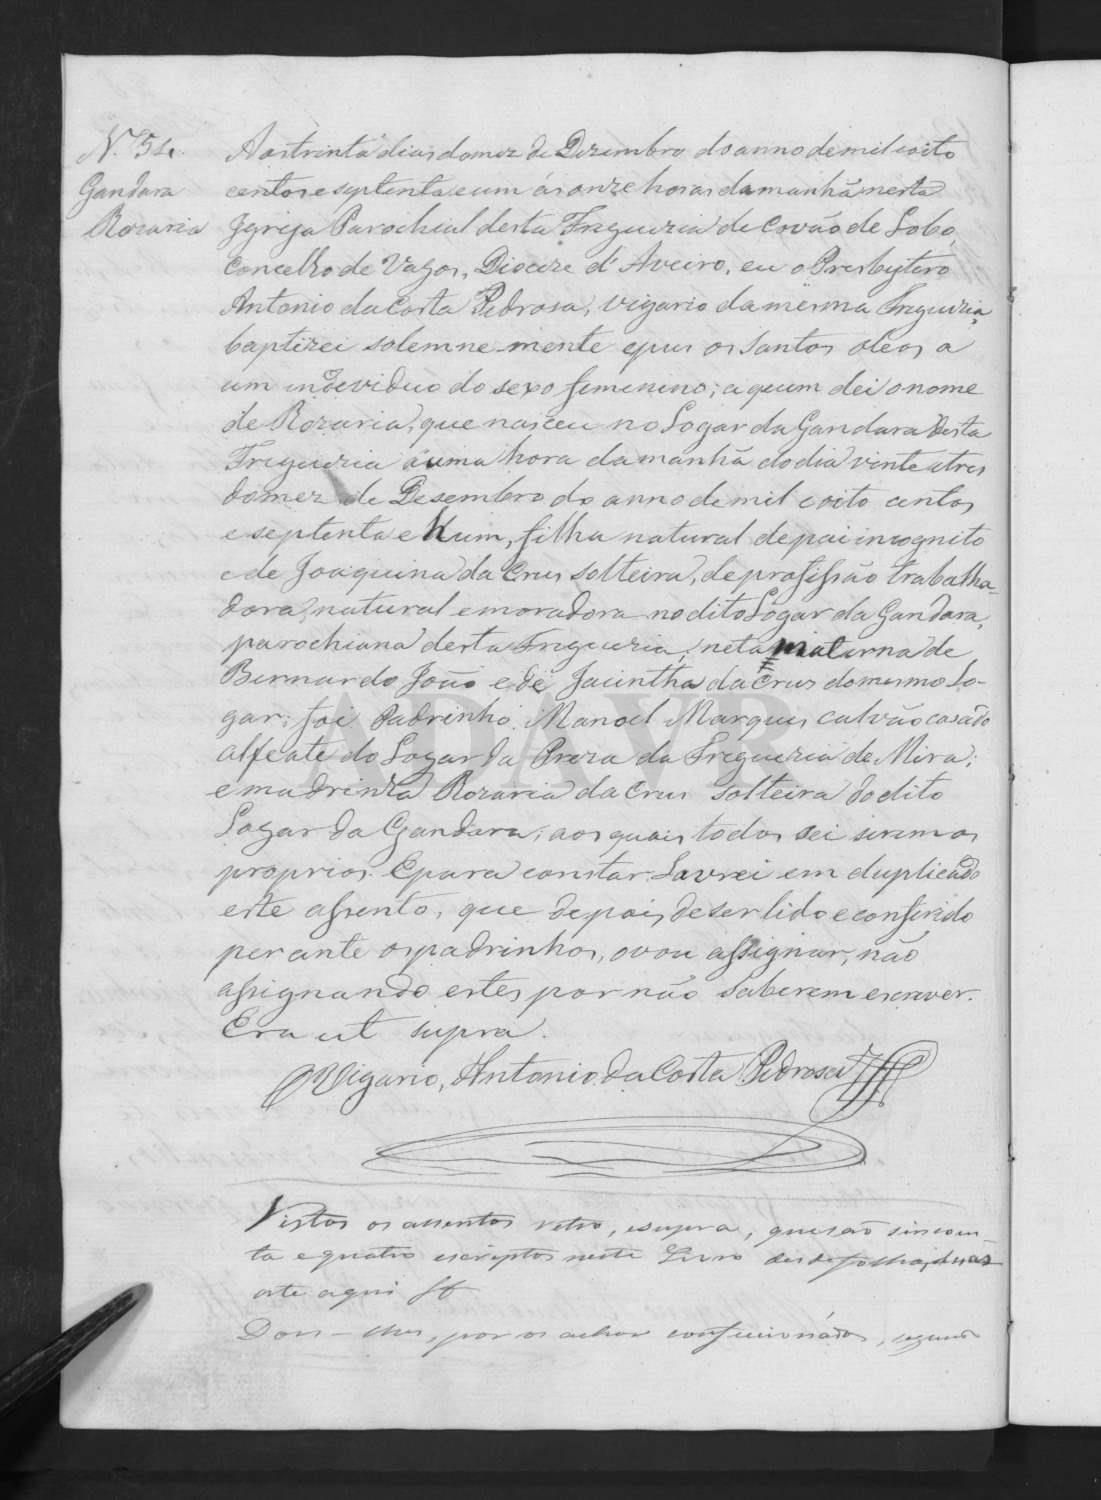 N.º 54
Gandara
Rozaria
Aos trinta dias do mez de Dezembro do anno de mil e oito
centos e septenta e um ás onze horas da manhã nesta
Igreja Parochial desta Freguezia de Covão de Lobo,
Concelho de Vagos, Dioceze d'Aveiro, eu o Presbytero
Antonio da Costa Pedrosa, vigario da mesma Freguezia,
baptizei solemne-mente e pus os Santos oleos a
um individuo do sexo femenino; a quem dei o nome
de Rozaria, que nasceu no Logar da Gandara desta
Freguezia á uma hora da manhã do dia vinte e tres
do mez de Desembro do anno de mil e oito centos
e septenta e hum, filha natural de pai incognito
e de Joaquina da Crus solteira, de profissão trabalha-
dora, natural e moradora no dito Logar da Gandara,
parochiana desta Freguezia, neta materna de
Bernardo João e de Jacintha da Cruz do mesmo Lo-
gar; foi Padrinho Manoel Marques Calvão casado
alfeate do Logar da Preza da Freguezia de Mira;
e madrinha Rozaria da Crus solteira do dito
Logar da Gandara; aos quais todos sei serem os
proprios. E para constar Lavrei em duplicado
este assento, que depois de ser lido e conferido
perante os padrinhos, o vou assignar, não
assignando estes por não saberem escrever.
Era ut supra.
O Vigario, Antonio da Costa Pedrosa
Vistos os assentos retro, e supra, que são sincoen-
ta e quatro escriptos neste Livro desde folhas duas
ate aqui
Dou-lhes, por os achar confecionados, segundo